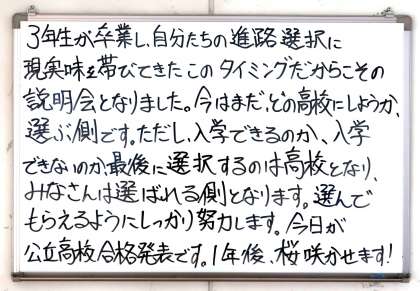 3年生が卒業し、自分たちの進路選択に
現実味を帯びてきたこのタイミングだからこその
説明会となりました。今はまだ、どの高校にしようか、
選ぶ側です。ただし、入学できるのか、入学
できないのか、最後に選択するのは高校となり、
みなさんは選ばれる側となります。選んで
もらえるようにしっかり努力します。今日が
公立高校合格発表です。1年後、桜咲かせます!